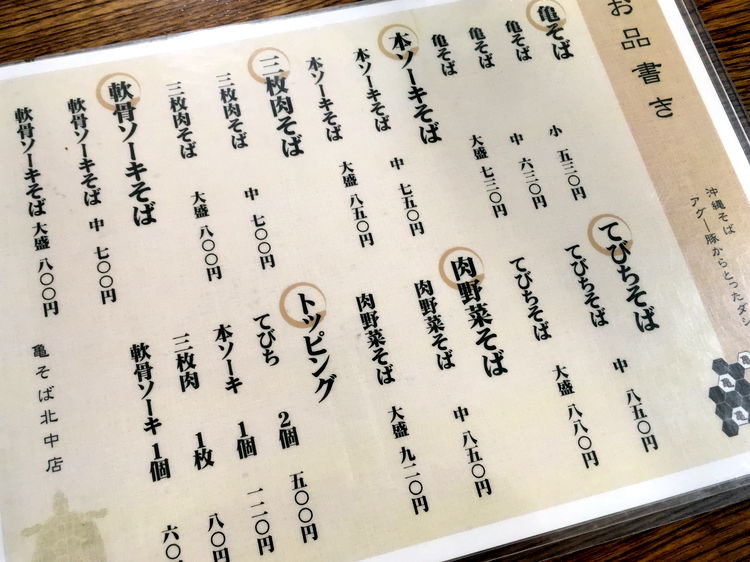 お品書き
沖縄そば
アグー豚からとったダシ
亀そば
亀そば 小 五三〇円
亀そば 中 六三〇円
亀そば 大盛 七三〇円
本ソーキそば
本ソーキそば 中 七五〇円
本ソーキそば 大盛 八五〇円
三枚肉そば
三枚肉そば 中 七〇〇円
三枚肉そば 大盛 八〇〇円
軟骨ソーキそば
軟骨ソーキそば 中 七〇〇円
軟骨ソーキそば 大盛 八〇〇円
てびちそば
てびちそば 中 八五〇円
てびちそば 大盛 八八〇円
肉野菜そば
肉野菜そば 中 八五〇円
肉野菜そば 大盛 九二〇円
トッピング
てびち 2個 五〇〇円
本ソーキ 1個 一二〇円
三枚肉 1枚 八〇円
軟骨ソーキ 1個 六〇
亀そば北中店
亀
亀
亀